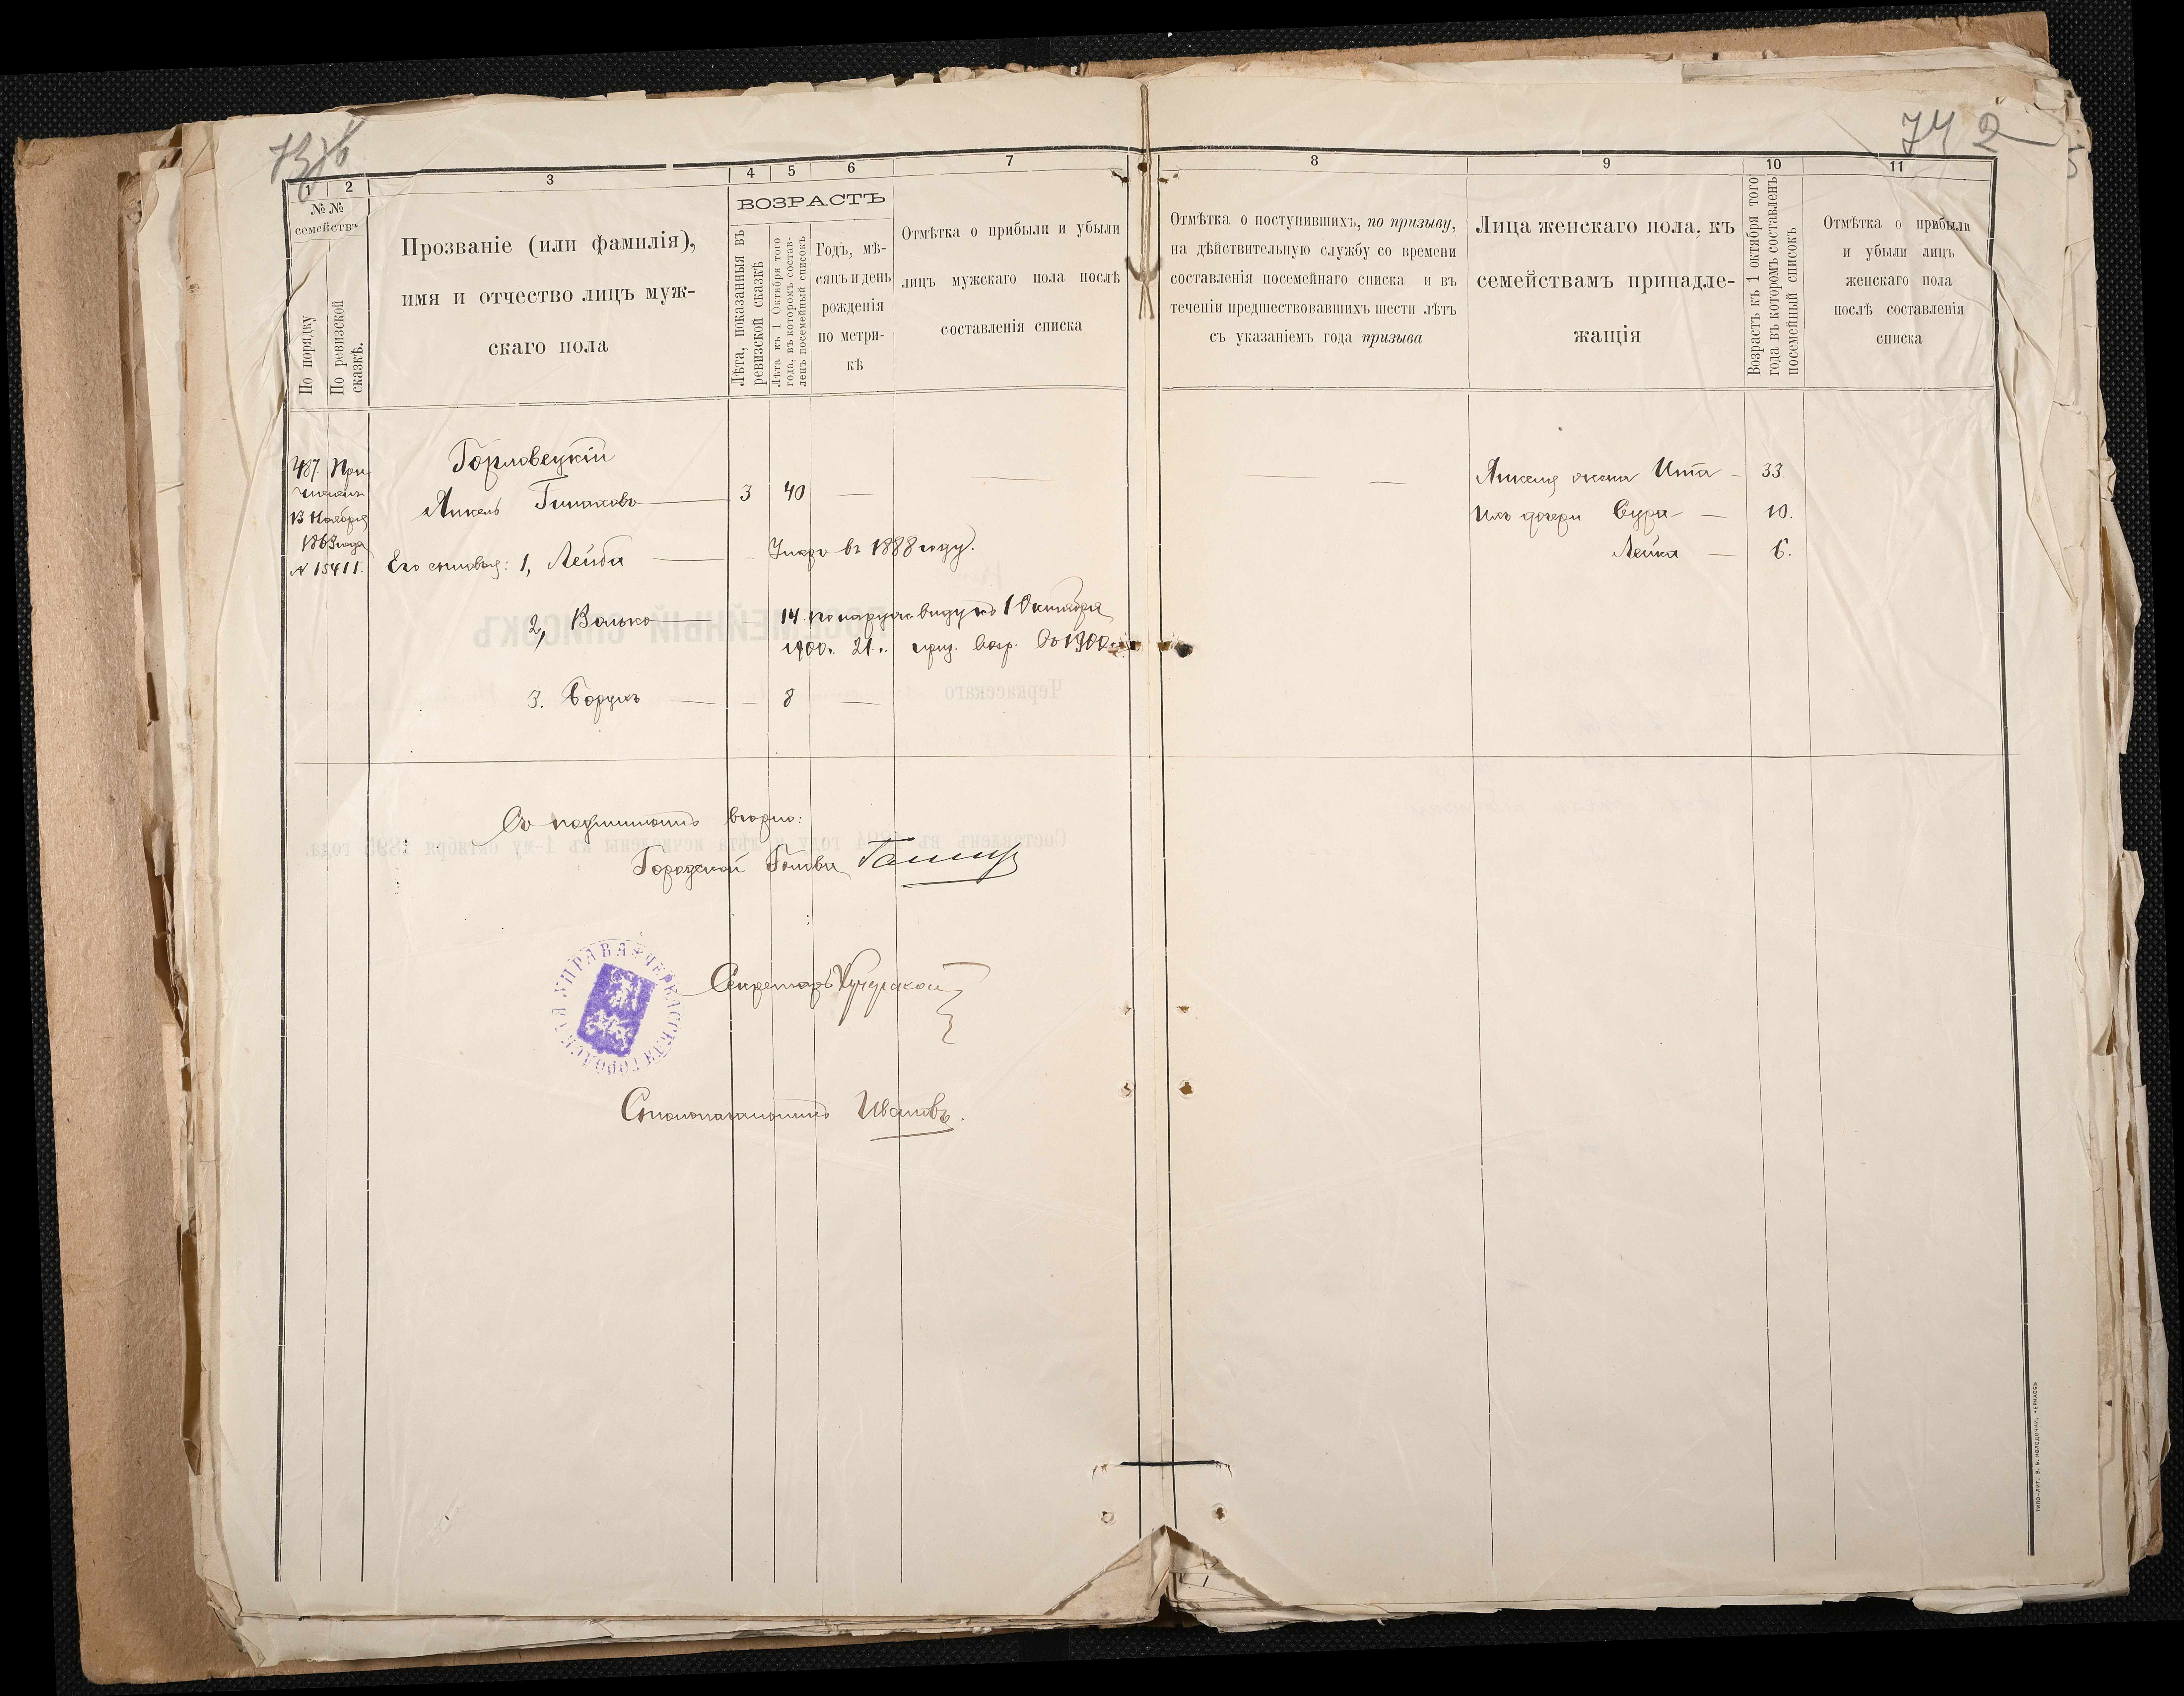 742
1
2
3
4
5
6
7
8
9
10
11
№№
семействъ
По порядку
По ревизской
сказкѣ.
Прозваніе (или фамилія),
имя и отчество лицъ муж-
скаго пола
ВОЗРАСТЪ
Лѣта, показанныя въ
ревизской сказкѣ
Лѣта къ 1 Октября того
года, въ которомъ состав-
ленъ посемейный списокъ
Годъ, мѣ-
сяцъ и день
рожденія
по метри-
кѣ
Отмѣтка о прибыли и убыли
лицъ мужскаго пола послѣ
составленія списка
Отмѣтка о поступившихъ, по призыву,
на дѣйствительную службу со времени
составленія посемейнаго списка и въ
теченіи предшествовавшихъ шести лѣтъ
съ указаніемъ года призыва
Лица женскаго пола, къ
семействамъ принадле-
жащія
Возрастъ къ 1 октября того
года въ которомъ составленъ
посемейный списокъ
Отмѣтка о прибыли
и убыли лицъ
женскаго пола
послѣ составленія
списка
487. При
численъ
13 Ноября
1863 года
№ 15411.
Горловецкій
Янкель — 3 40 —
Его сыновья: 1, Лейба — Умеръ въ 1888 году.
2, Волько — 14 по наружн. виду къ 1 Октября
1900 г. 21 г.
3. Борухъ — 8 —
Янкеля жена Ита — 33.
Ихъ дочери Сура — 10.
Лейка — 6.
Съ подлиннымъ вѣрно:
Городской Голова
Секретарь
Столоначальникъ Ивановъ.
ЧЕРКАССКАЯ ГОРОДСКАЯ УПРАВА
ПОСЕМЕЙНЫЙ СПИСОКЪ
Черкасскаго
ТИПО-ЛИТ. В. В. КОЛОДОЧКИ, ЧЕРКАССЫ